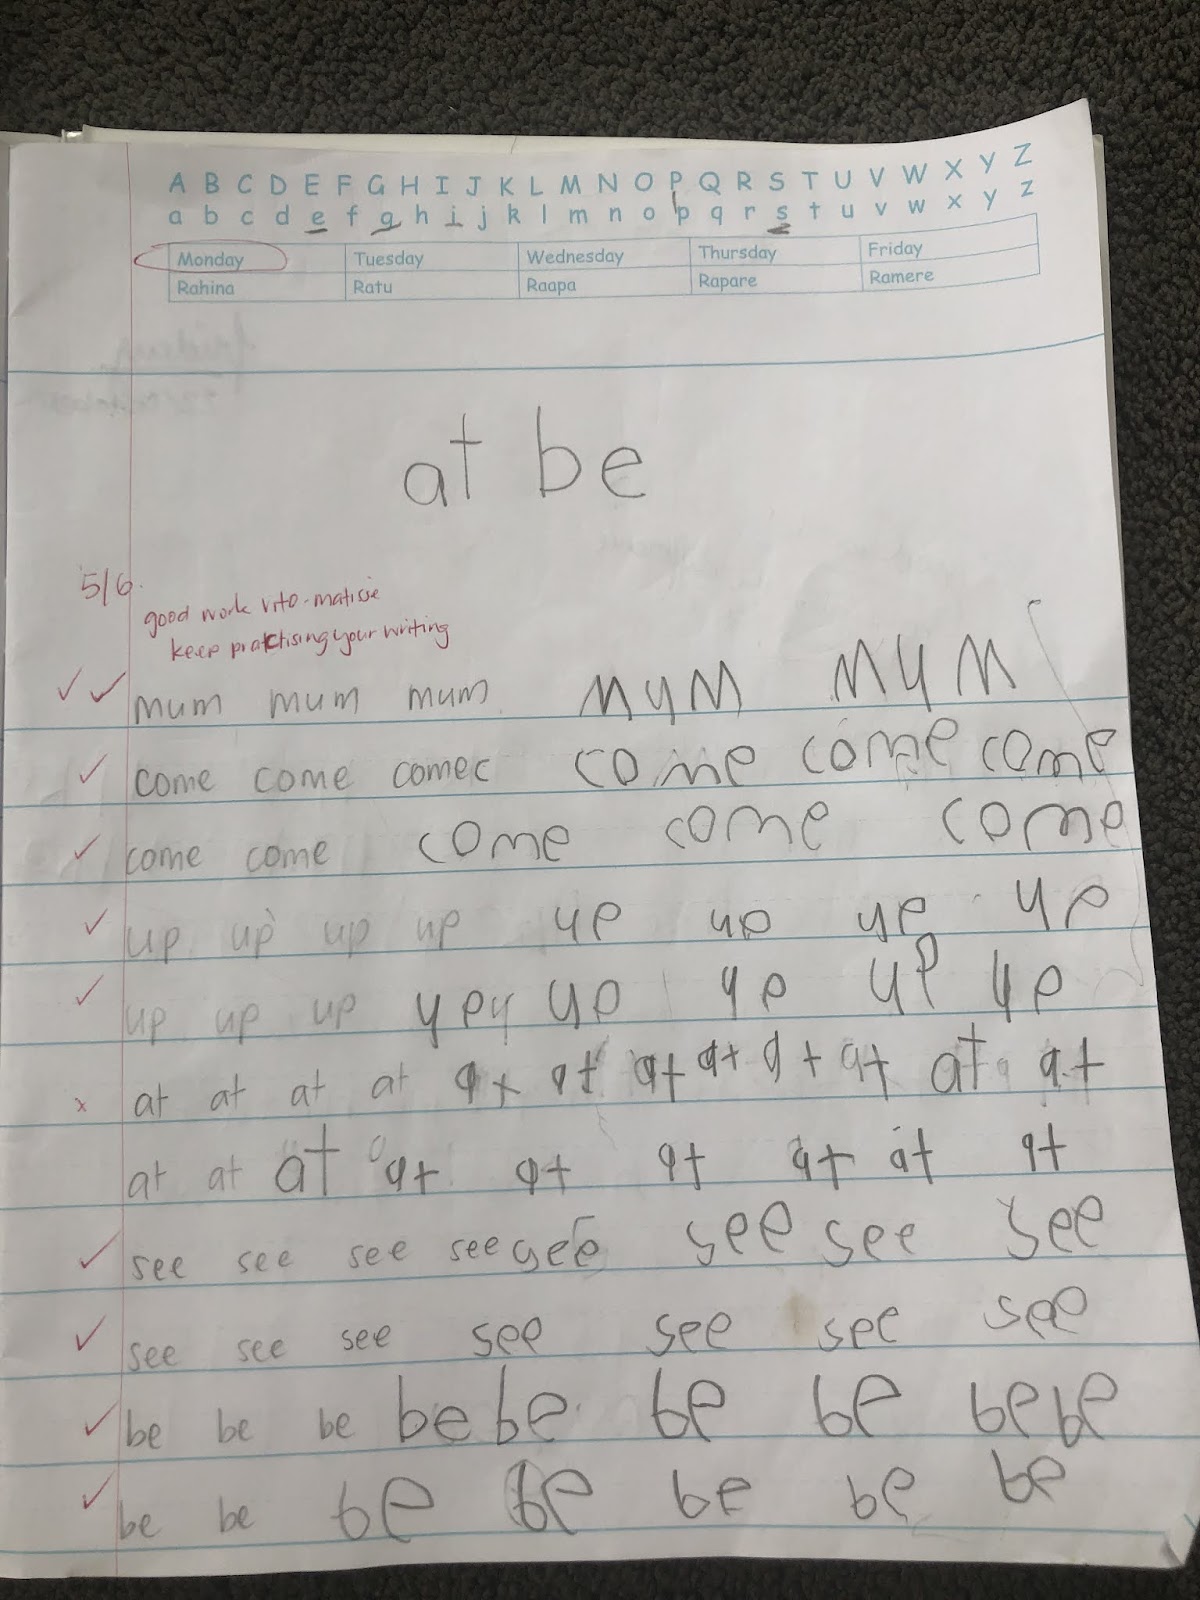 A B C D E F G H I J K L M N O P Q R S T U V W X Y Z
a b c d e f g h i j k l m n o p q r s t u v w x y z
Monday Tuesday Wednesday Thursday Friday
Rahina Ratu Raapa Rapare Ramere
at be
5/6.
good work vito-matisse
keep practising your writing
mum mum mum mum mum
come come comec come come come
come come come come come
up up up up up up up up
up up up upy up up up up
at at at at at at at at at at at at
at at at at at at at at at
see see see see see see see see
see see see see see see see
be be be be be be be be be
be be be be be be be